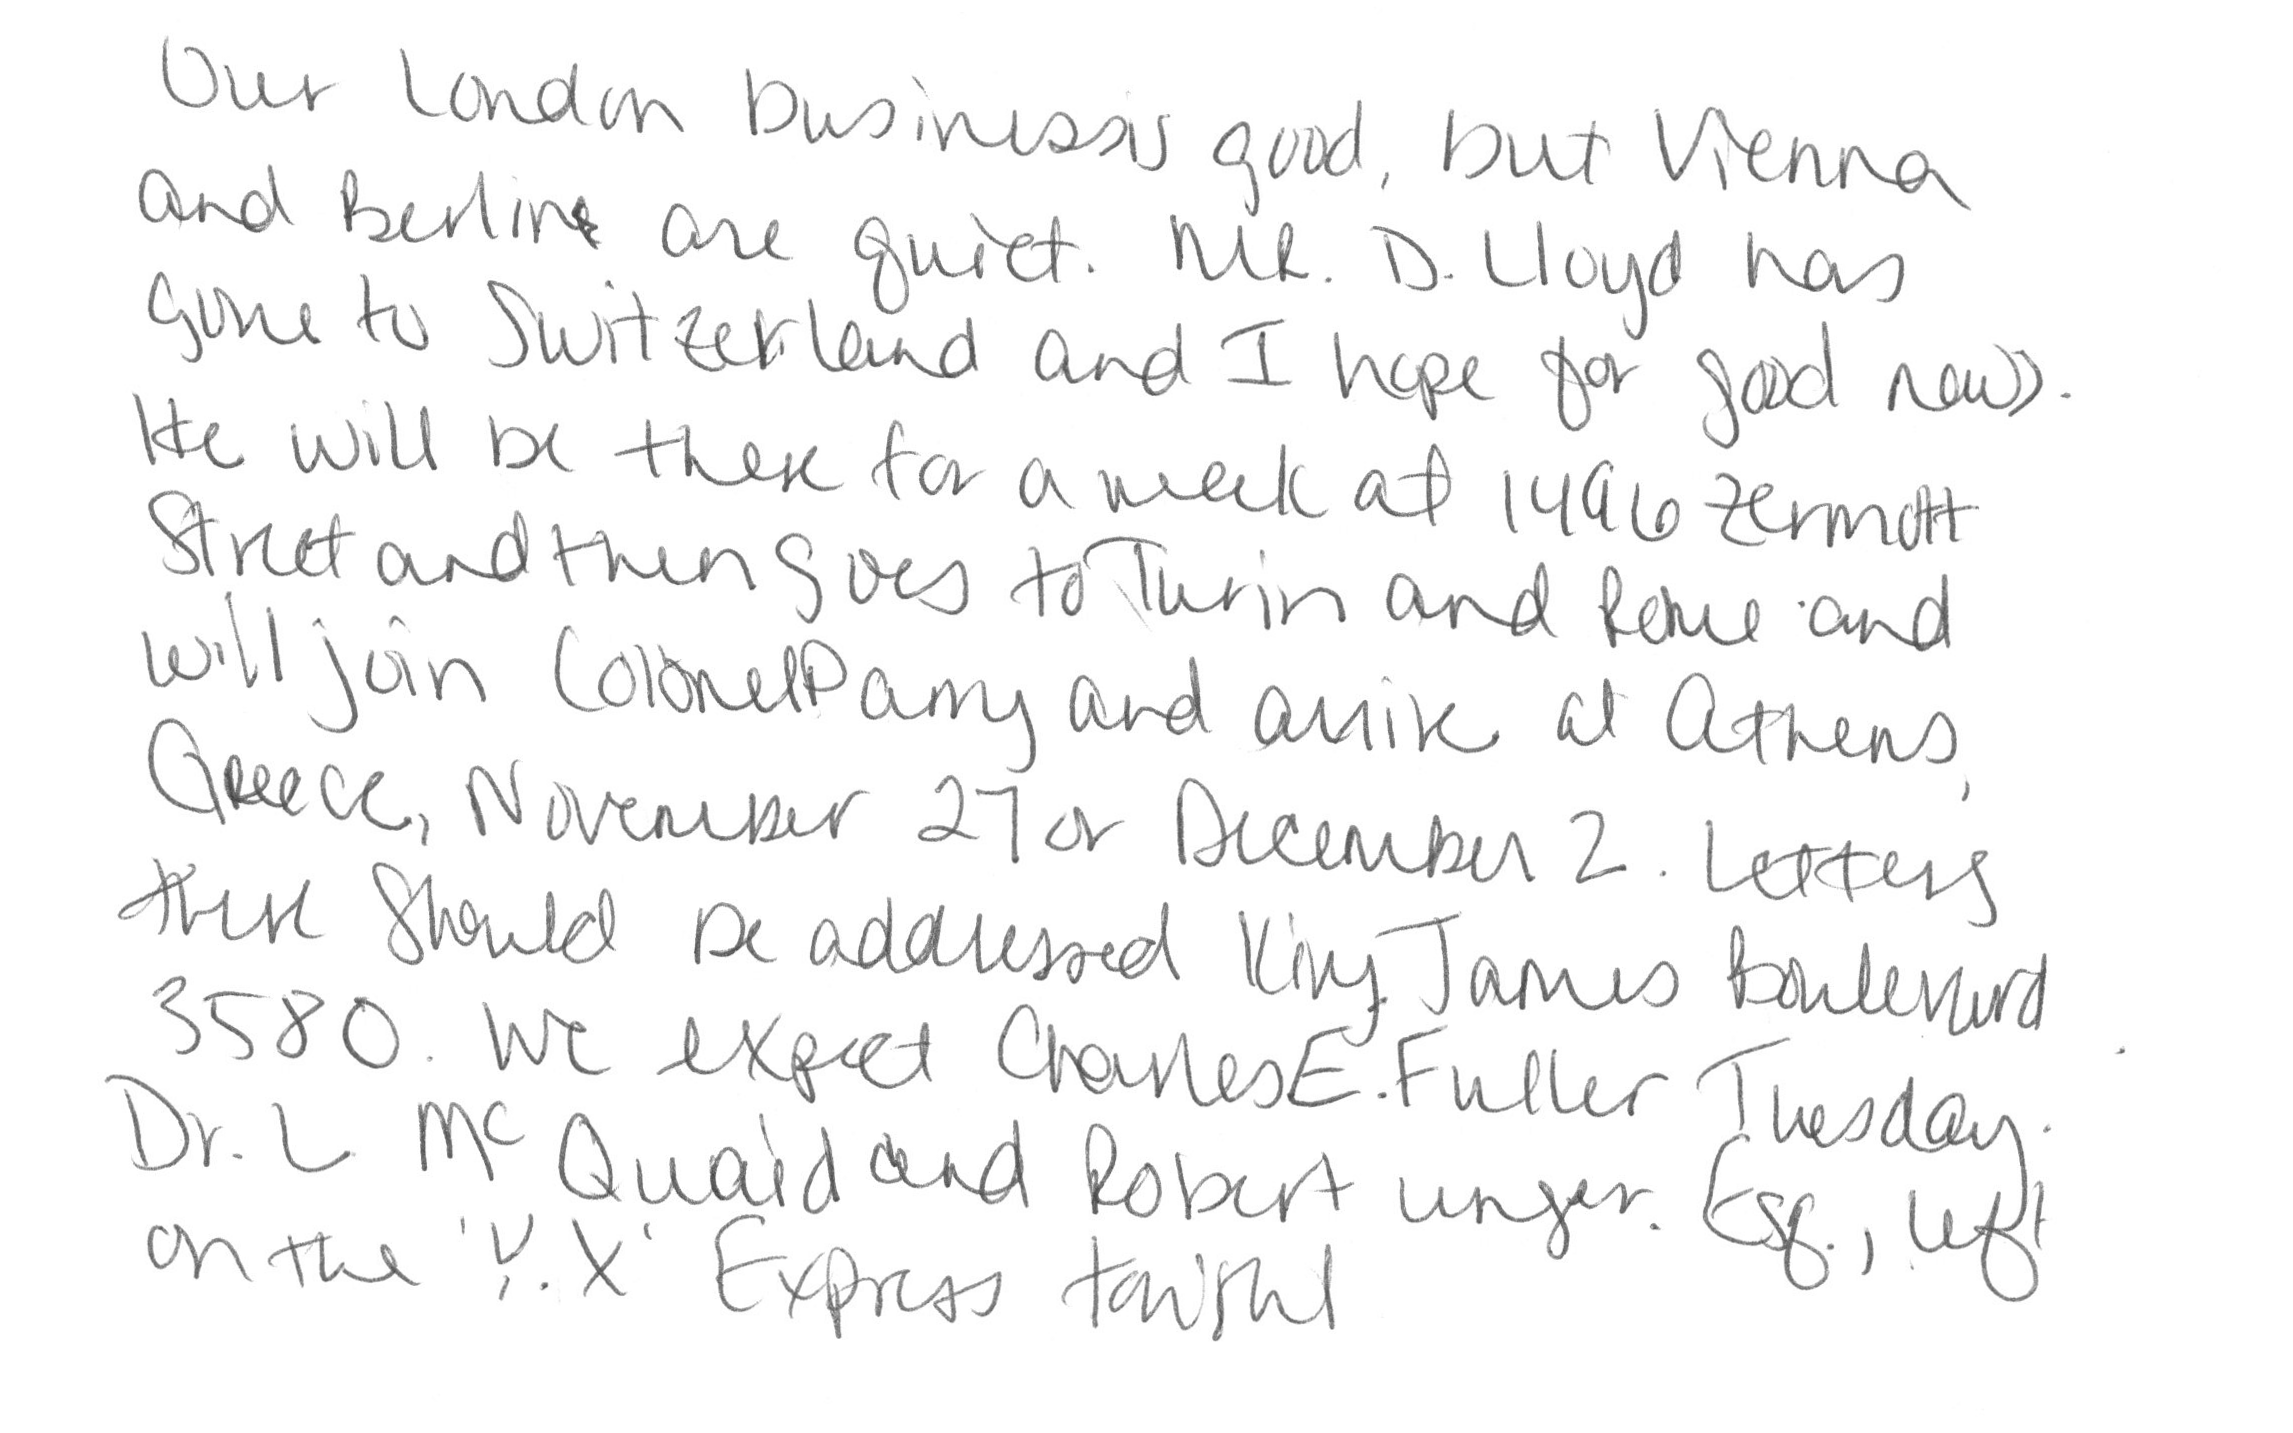 Our London business is good, but Vienna
and Berlin are quiet. MR. D. Lloyd has
gone to Switzerland and I hope for good news.
He will be there for a week at 1496 Zermott
Street and then goes to Turin and Rome and
will join Colonel Parry and arrive at Athens,
Greece, November 27 or December 2. Letters
there should be addressed King James Boulevard
3580. We expect Charles E. Fuller Tuesday.
Dr. L McQuaid and Robert unger. Esq., left
on the 'Y.X' Express tonight